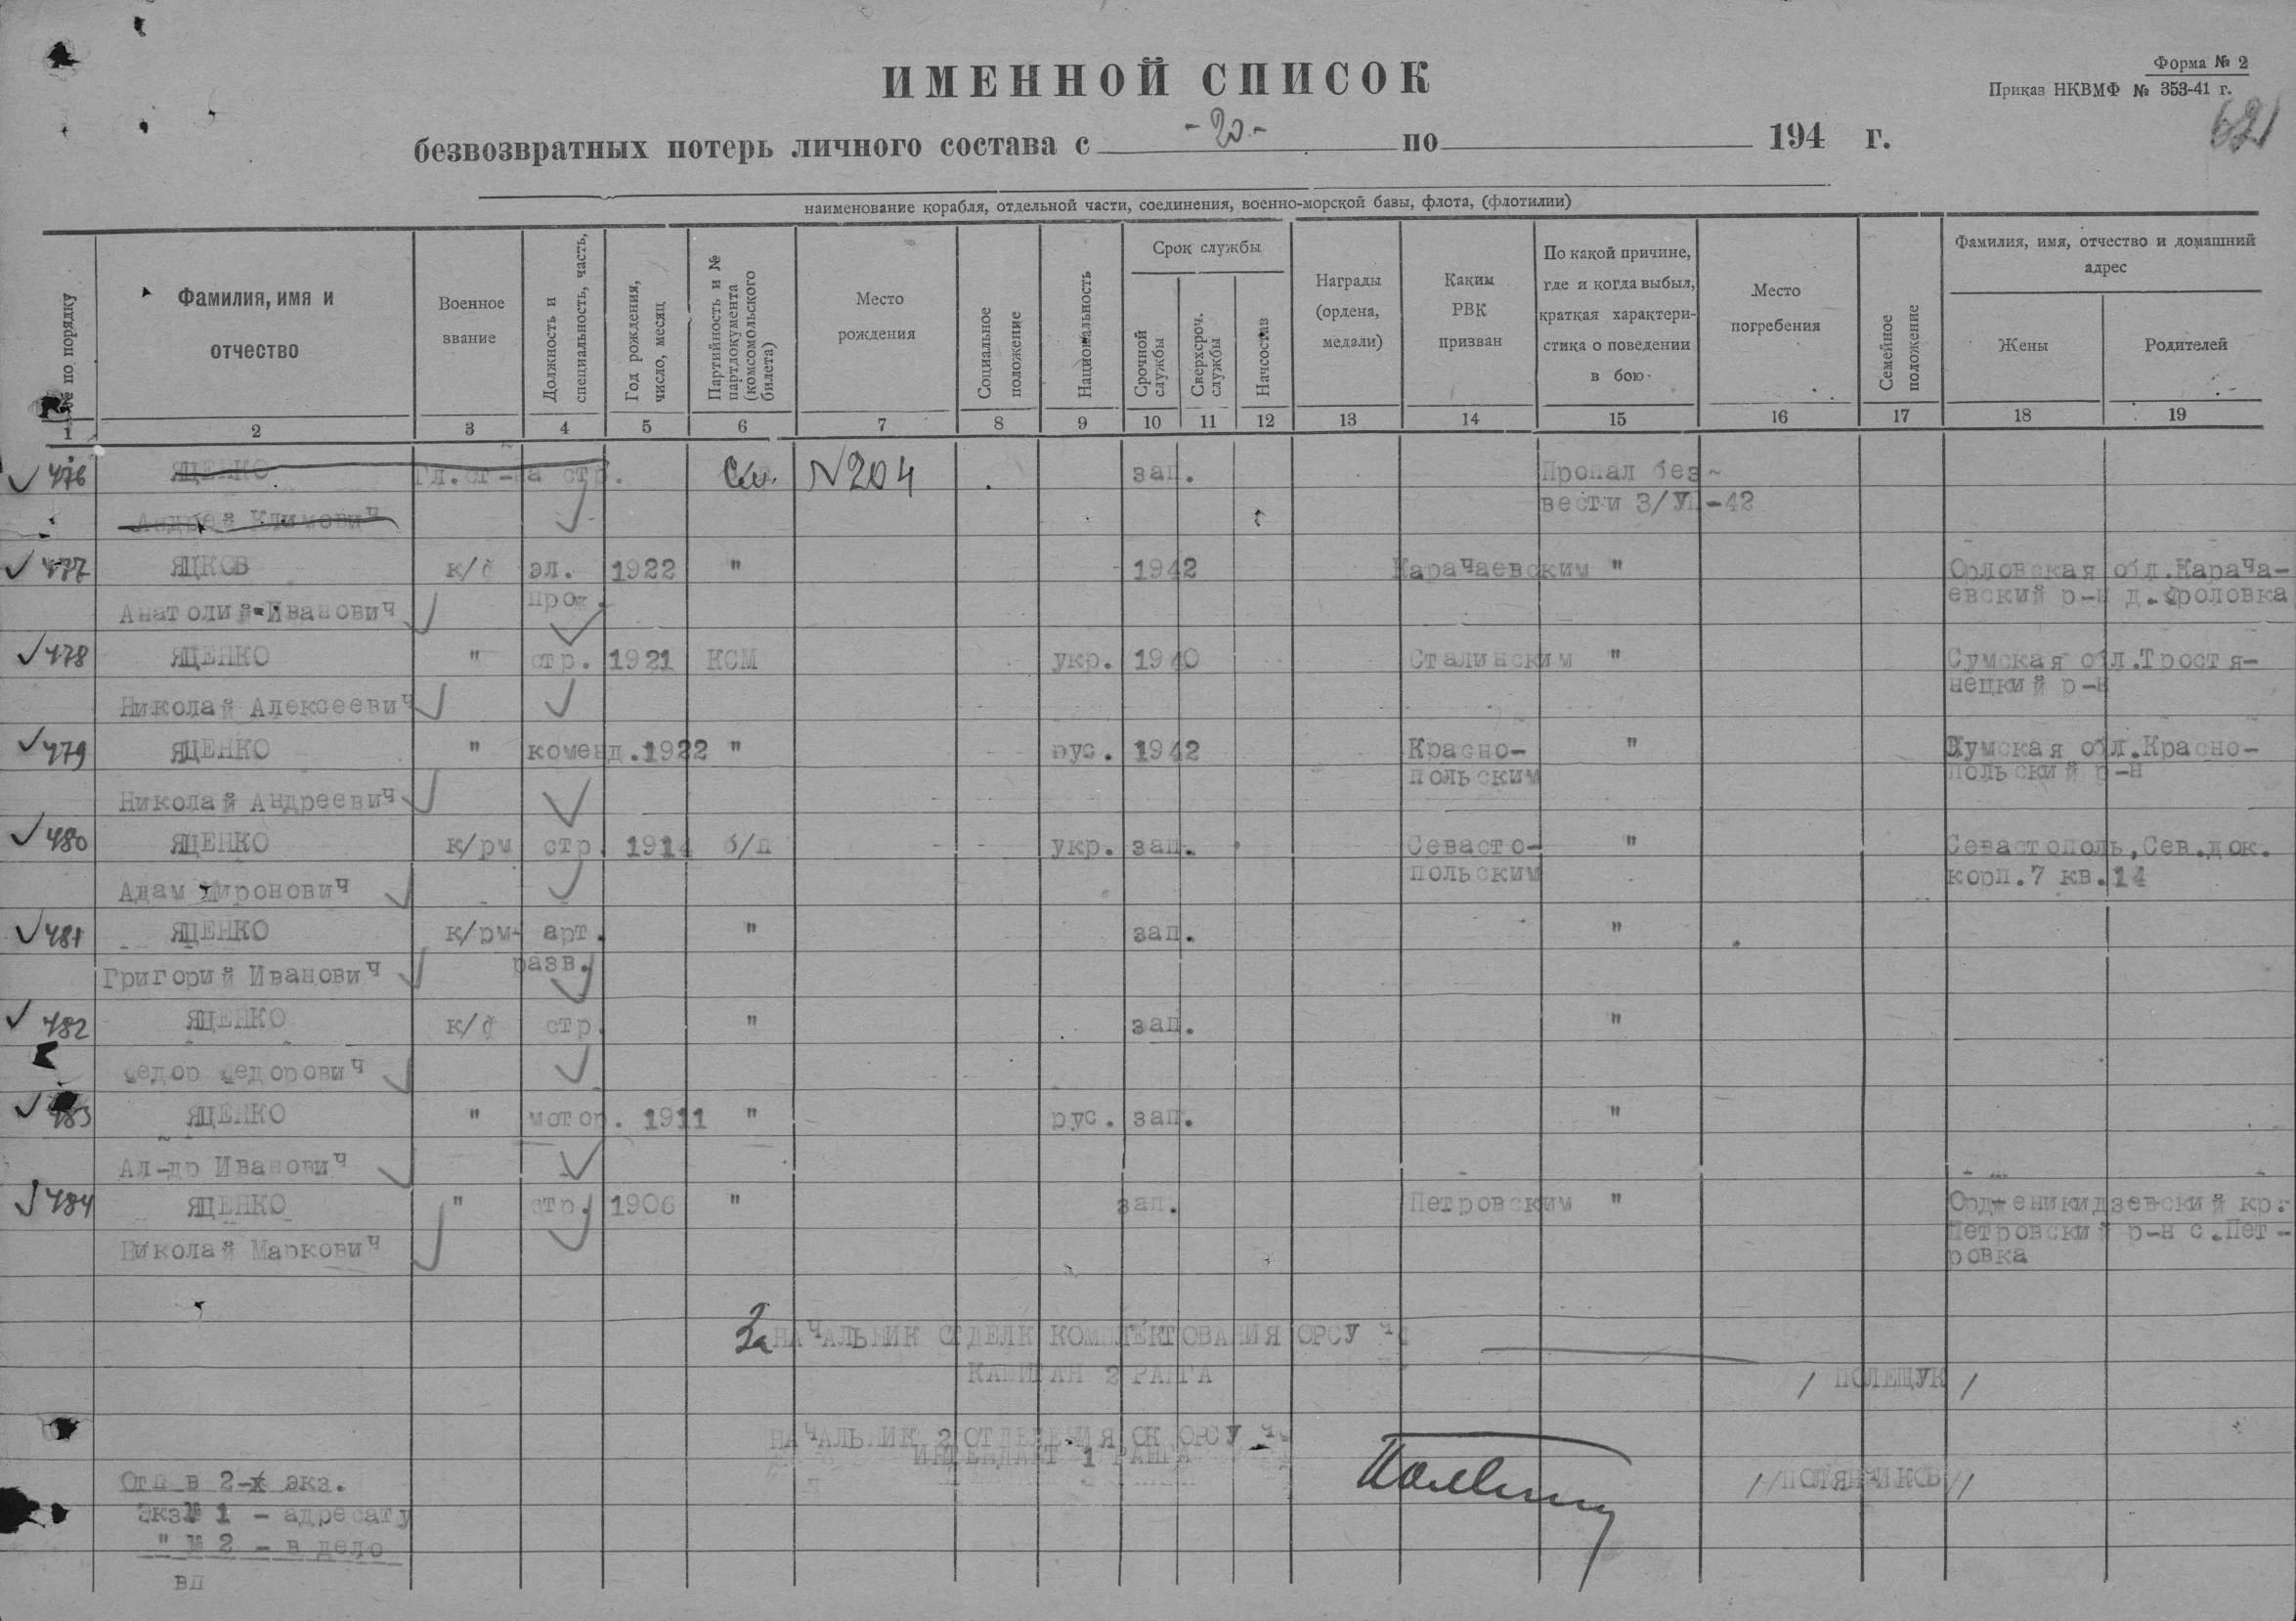 ИМЕННОЙ СПИСОК
Форма № 2
Приказ НКВМФ № 353-41 г.
621
безвозвратных потерь личного состава с -20- по 194 г.
наименование корабля, отдельной части, соединения, военно-морской базы, флота, (флотилии)
№ по порядку
Фамилия, имя и отчество
Военное звание
Должность и специальность, часть,
Год рождения, число, месяц
Партийность и № партдокумента (комсомольского билета)
Место рождения
Социальное положение
Национальность
Срок службы
Срочной службы
Сверхсроч. службы
Начсостав
Награды (ордена, медали)
Каким РВК призван
По какой причине, где и когда выбыл, краткая характеристика о поведении в бою
Место погребения
Семейное положение
Фамилия, имя, отчество и домашний адрес
Жены
Родителей
1 2 3 4 5 6 7 8 9 10 11 12 13 14 15 16 17 18 19
476 ЯЦЕНКО Гл.ст-на стр. См. №204 зап. Пропал без
Андрей Климович вести 3/УП-42
477 ЯЦКОВ к/ф эл. 1922 " 1942 Карачаевским " Орловская обл.Карача-
Анатолий Иванович прож. евский р-н д.Фроловка
478 ЯЦЕНКО " стр. 1921 КСМ укр. 1940 Сталинским " Сумская обл.Тростя-
Николай Алексеевич нецкий р-н
479 ЯЦЕНКО " коменд. 1922 " рус. 1942 Красно- " Сумская обл.Красно-
польским польский р-н
Николай Андреевич
480 ЯЦЕНКО к/рм стр. 1914 б/п укр. зап. Севасто- " Севастополь,Сев.док.
Адам Миронович польским корп.7 кв.14
481 ЯЦЕНКО к/рм арт. " зап. "
Григорий Иванович разв.
482 ЯЦЕНКО к/ф стр. " зап. "
Федор Федорович
483 ЯЦЕНКО " мотор. 1911 " рус. зап. "
Ал-др Иванович
484 ЯЦЕНКО " стр. 1906 " зап. Петровским " Ордженикидзевский кр.
Николай Маркович Петровский р-н с.Пет-
ровка
За НАЧАЛЬНИК ОТДЕЛК КОМПЛЕКТОВАНИЯ ОРСУ ЧФ
КАПИТАН 2 РАНГА / ПОЛЕЩУК /
НАЧАЛЬНИК 2 ОТДЕЛЕНИЯ ОК ОРСУ ЧФ
ИНТЕНДАНТ 1 РАНГА /ПОЛЯНЧИКОВ/
Отп в 2-х экз.
Экз№ 1 - адресату
" № 2 - в дело
вп